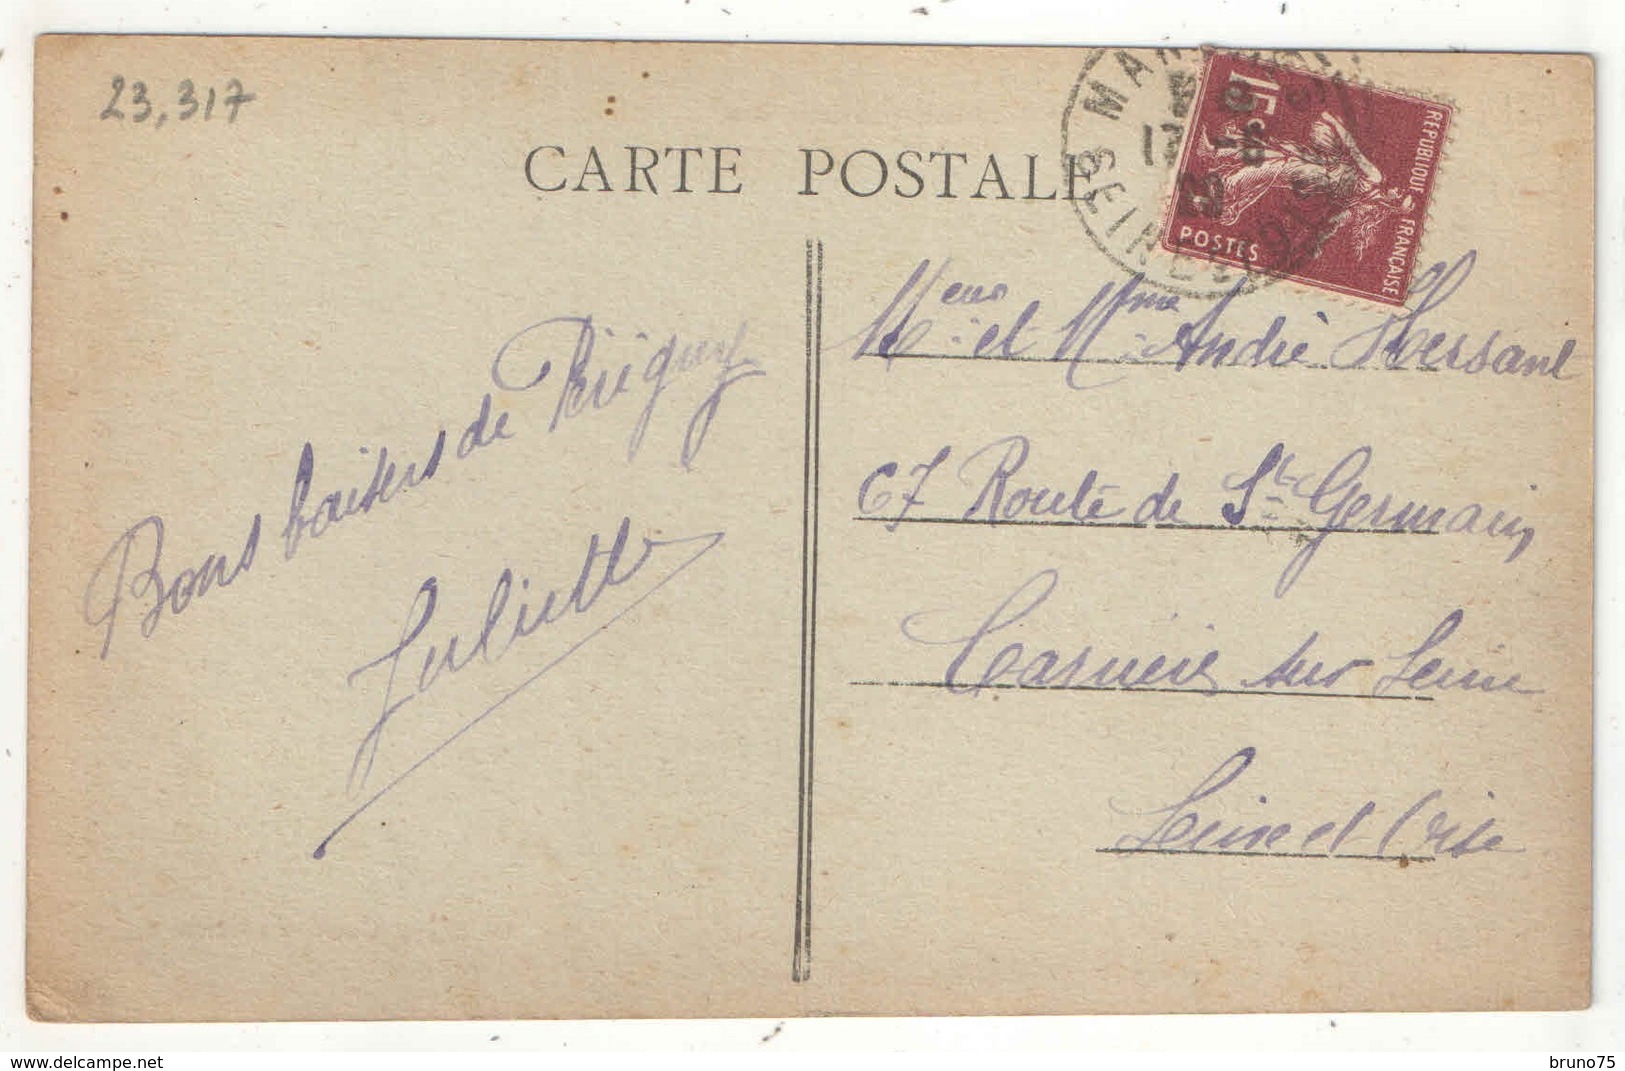 23,317
CARTE POSTALE
15c
REPUBLIQUE FRANÇAISE
POSTES
SEINE
Bons baisers de Périgny
Juliette
Meur et Mme André Hersant
67 Route de St Germain,
Carrière sur Seine
Seine et Oise
www.delcampe.net
bruno75